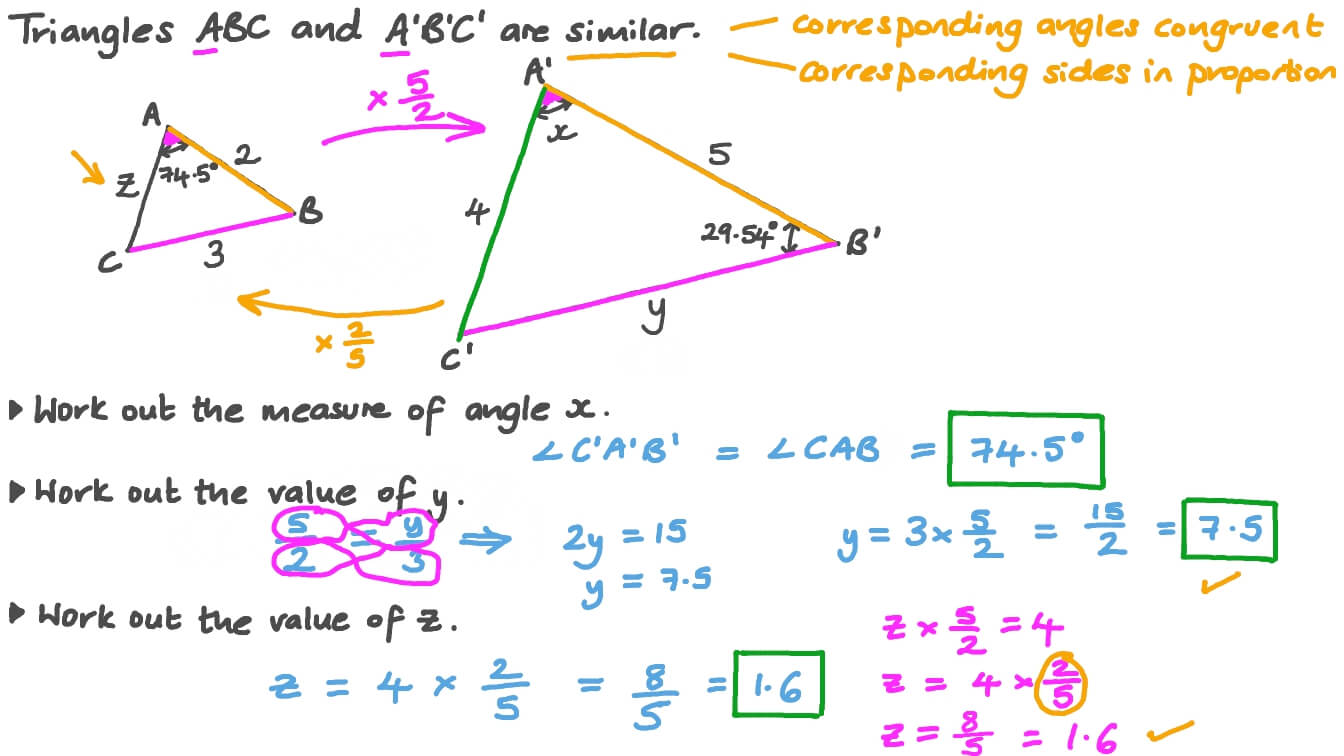 Triangles ABC and A'B'C' are similar.
corresponding angles congruent
corresponding sides in proportion
A
2
74.5°
z
B
C
3
× 5/2
× 2/5
A'
x
5
4
29.54°
B'
y
C'
▸ Work out the measure of angle x.
∠C'A'B' = ∠CAB = 74.5°
▸ Work out the value of y.
5/2 = y/3 ⇒ 2y = 15
y = 7.5
y = 3 × 5/2 = 15/2 = 7.5 ✓
▸ Work out the value of z.
z = 4 × 2/5 = 8/5 = 1.6
z × 5/2 = 4
z = 4 × 2/5
z = 8/5 = 1.6 ✓